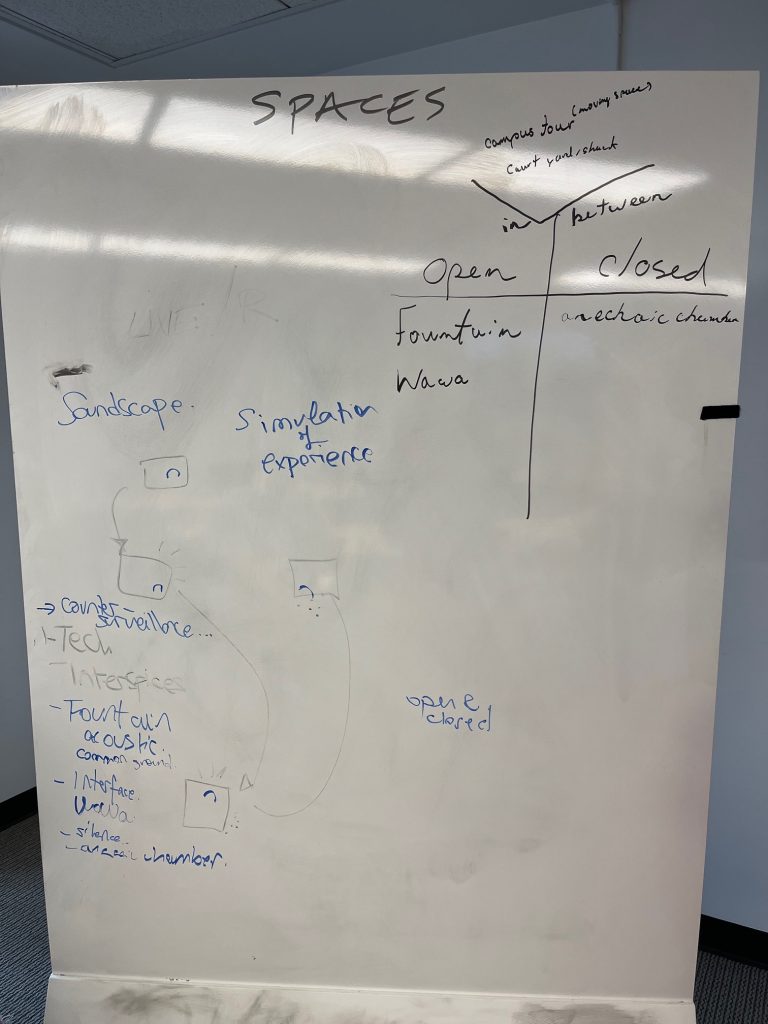 SPACES
campus tour (moving space)
Court yard/shack
in between
Open closed
Fountain anechoic chamber
Wawa
LIVE:
Sandscape.
Simulation
of
experience
→ counter-
surveillance...
- Tech
- Interspices
- Fountain
acoustic.
common ground.
- Interface.
WaWa
- silence..
chamber.
open e
closed